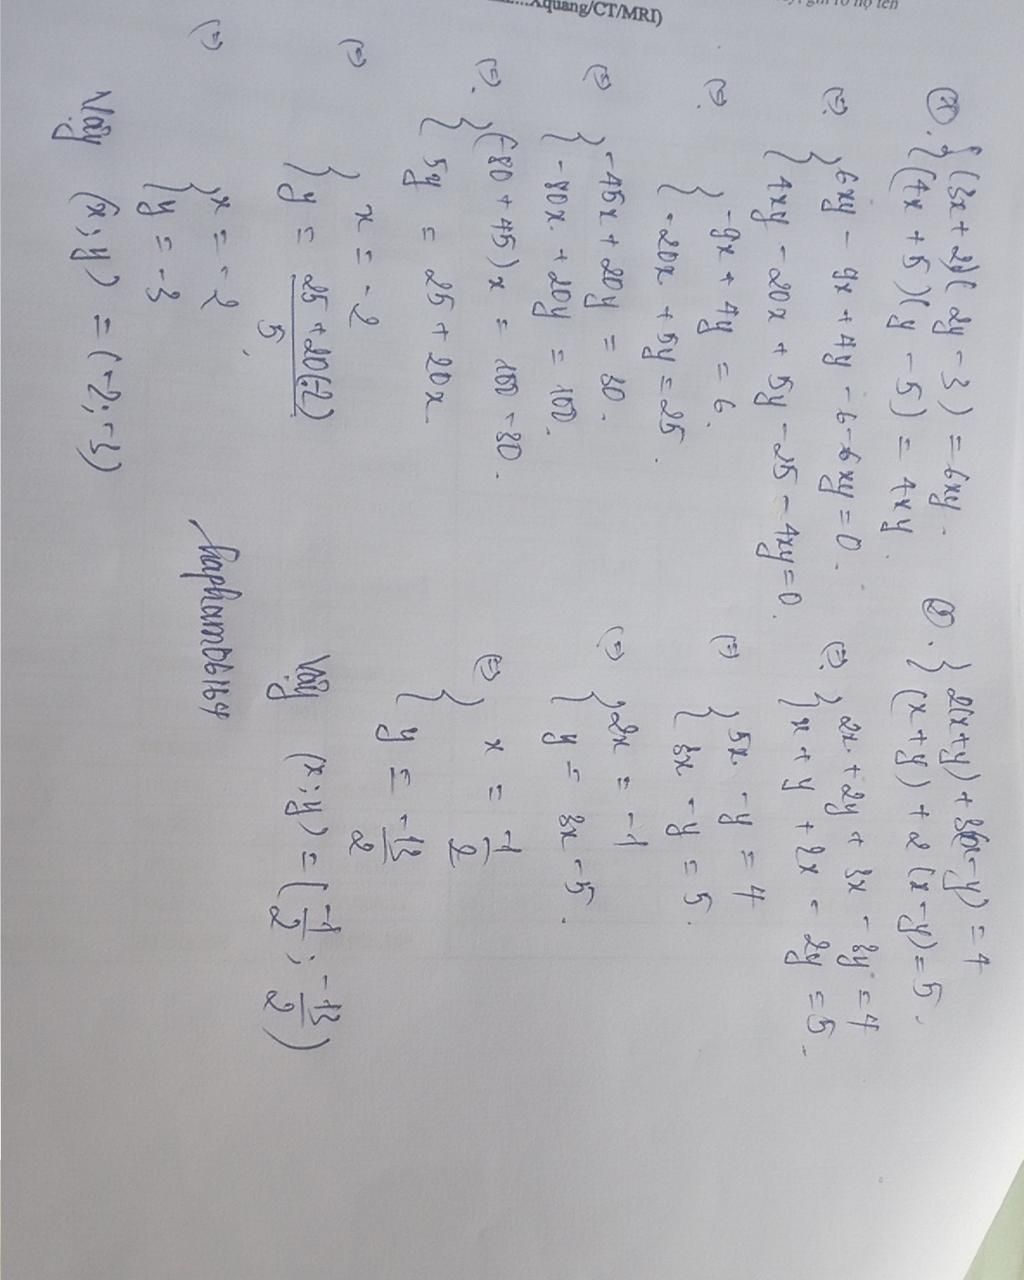 Xquang/CT/MRI)
ghi rõ họ tên
{ (3x + 2)(2y - 3) = 6xy.
(4x + 5)(y - 5) = 4xy
(=). { 6xy - 9x + 4y - 6 - 6xy = 0.
4xy - 20x + 5y - 25 - 4xy = 0.
(=). { -9x + 4y = 6.
-20x + 5y = 25.
(=) { -45x + 20y = 30.
-80x + 20y = 100.
(=). { (-80 + 45)x = 100 - 30.
5y = 25 + 20x
(=) { x = -2
y = 25 + 20(-2) / 5
(=) { x = -2
y = -3
Vậy (x; y) = (-2; -3)
{ 2(x+y) + 3(x-y) = 4
(x+y) + 2(x-y) = 5.
(=). { 2x + 2y + 3x - 3y = 4
x + y + 2x - 2y = 5.
(=) { 5x - y = 4
3x - y = 5.
(=) { 2x = -1
y = 3x - 5.
(=) { x = -1/2
y = -13/2
Vậy (x; y) = (-1/2; -13/2)